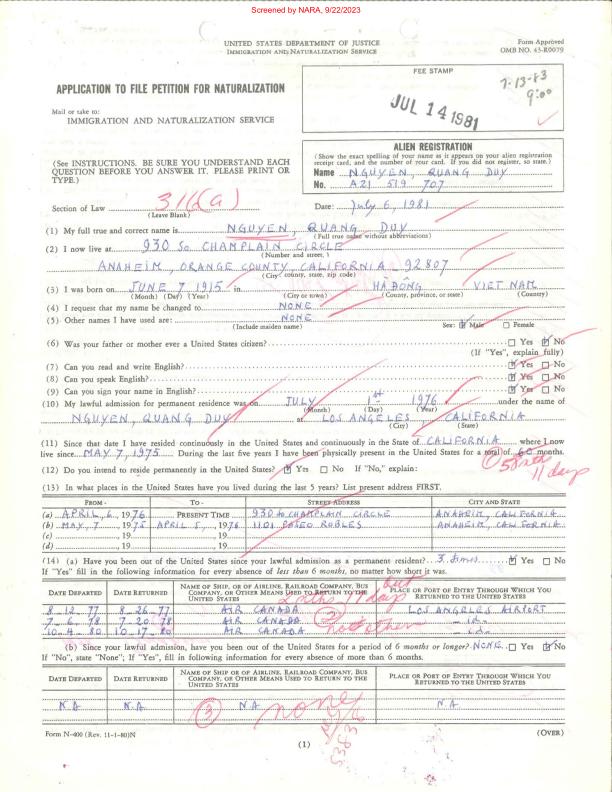 Screened by NARA, 9/22/2023
UNITED STATES DEPARTMENT OF JUSTICE
IMMIGRATION AND NATURALIZATION SERVICE
Form Approved
OMB NO. 43-R0079
APPLICATION TO FILE PETITION FOR NATURALIZATION
Mail or take to:
IMMIGRATION AND NATURALIZATION SERVICE
FEE STAMP
7-13-83
9:00
JUL 14 1981
(See INSTRUCTIONS. BE SURE YOU UNDERSTAND EACH QUESTION BEFORE YOU ANSWER IT. PLEASE PRINT OR TYPE.)
ALIEN REGISTRATION
(Show the exact spelling of your name as it appears on your alien registration receipt card, and the number of your card. If you did not register, so state.)
Name NGUYEN, QUANG DUY
No. A21 519 707
Section of Law 316(a)
(Leave Blank)
Date: July 6, 1981
(1) My full true and correct name is NGUYEN, QUANG DUY
(Full true name without abbreviations)
(2) I now live at 930 So. CHAMPLAIN CIRCLE
(Number and street,)
ANAHEIM, ORANGE COUNTY, CALIFORNIA - 92807
(City, county, state, zip code)
(3) I was born on JUNE 7 1915 in HÀ ĐÔNG VIET NAM
(Month) (Day) (Year) (City or town) (County, province, or state) (Country)
(4) I request that my name be changed to NONE
(5) Other names I have used are: NONE
(Include maiden name) Sex: Male Female
(6) Was your father or mother ever a United States citizen? Yes No
(If "Yes", explain fully)
(7) Can you read and write English? Yes No
(8) Can you speak English? Yes No
(9) Can you sign your name in English? Yes No
(10) My lawful admission for permanent residence was on JULY 1st 1976 under the name of
(Month) (Day) (Year)
NGUYEN, QUANG DUY at LOS ANGELES, CALIFORNIA
(City) (State)
(11) Since that date I have resided continuously in the United States and continuously in the State of CALIFORNIA where I now
live since MAY 7, 1975 During the last five years I have been physically present in the United States for a total of 60 months.
① 58 mth
11 days
(12) Do you intend to reside permanently in the United States? Yes No If "No," explain:
(13) In what places in the United States have you lived during the last 5 years? List present address FIRST.
FROM - TO - STREET ADDRESS CITY AND STATE
(a) APRIL, 6, 1976 PRESENT TIME 930 So CHAMPLAIN CIRCLE ANAHEIM, CALIFORNIA
(b) MAY, 7, 1975 APRIL 5, 1976 1101 PASEO ROBLES ANAHEIM, CALIFORNIA
(c) , 19 , 19
(d) , 19 , 19
(14) (a) Have you been out of the United States since your lawful admission as a permanent resident? 3 times Yes No
If "Yes" fill in the following information for every absence of less than 6 months, no matter how short it was.
DATE DEPARTED DATE RETURNED NAME OF SHIP, OR OF AIRLINE, RAILROAD COMPANY, BUS COMPANY, OR OTHER MEANS USED TO RETURN TO THE UNITED STATES PLACE OR PORT OF ENTRY THROUGH WHICH YOU RETURNED TO THE UNITED STATES
out
11 days
8-12-77 8-26-77 AIR CANADA LOS ANGELES AIRPORT
7-6-78 7-20-78 AIR CANADA - id -
10-4-80 10-17-80 AIR CANADA - id -
② no other
(b) Since your lawful admission, have you been out of the United States for a period of 6 months or longer? NONE Yes No
If "No", state "None"; If "Yes", fill in following information for every absence of more than 6 months.
DATE DEPARTED DATE RETURNED NAME OF SHIP, OR OF AIRLINE, RAILROAD COMPANY, BUS COMPANY, OR OTHER MEANS USED TO RETURN TO THE UNITED STATES PLACE OR PORT OF ENTRY THROUGH WHICH YOU RETURNED TO THE UNITED STATES
N.A. N.A. N A N.A.
③ none
Form N-400 (Rev. 11-1-80)N
(1)
(OVER)